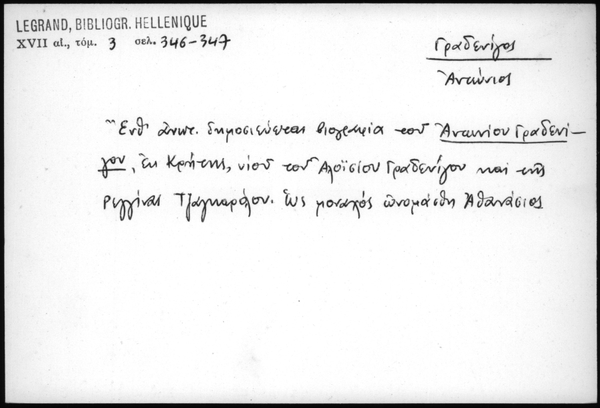 LEGRAND, BIBLIOGR. HELLENIQUE
XVII αἰ., τόμ. 3 σελ. 346-347
Γραδενίγος
Ἀντώνιος
Ἔνθ' ἀνωτ. δημοσιεύεται βιογραφία τοῦ Ἀντωνίου Γραδενί-
γου, ἐκ Κρήτης, υἱοῦ τοῦ Ἀλοϊσίου Γραδενίγου καὶ τῆς
Ρεγγίνας Τζαγκαρόλου. Ὡς μοναχός ὠνομάσθη Ἀθανάσιος